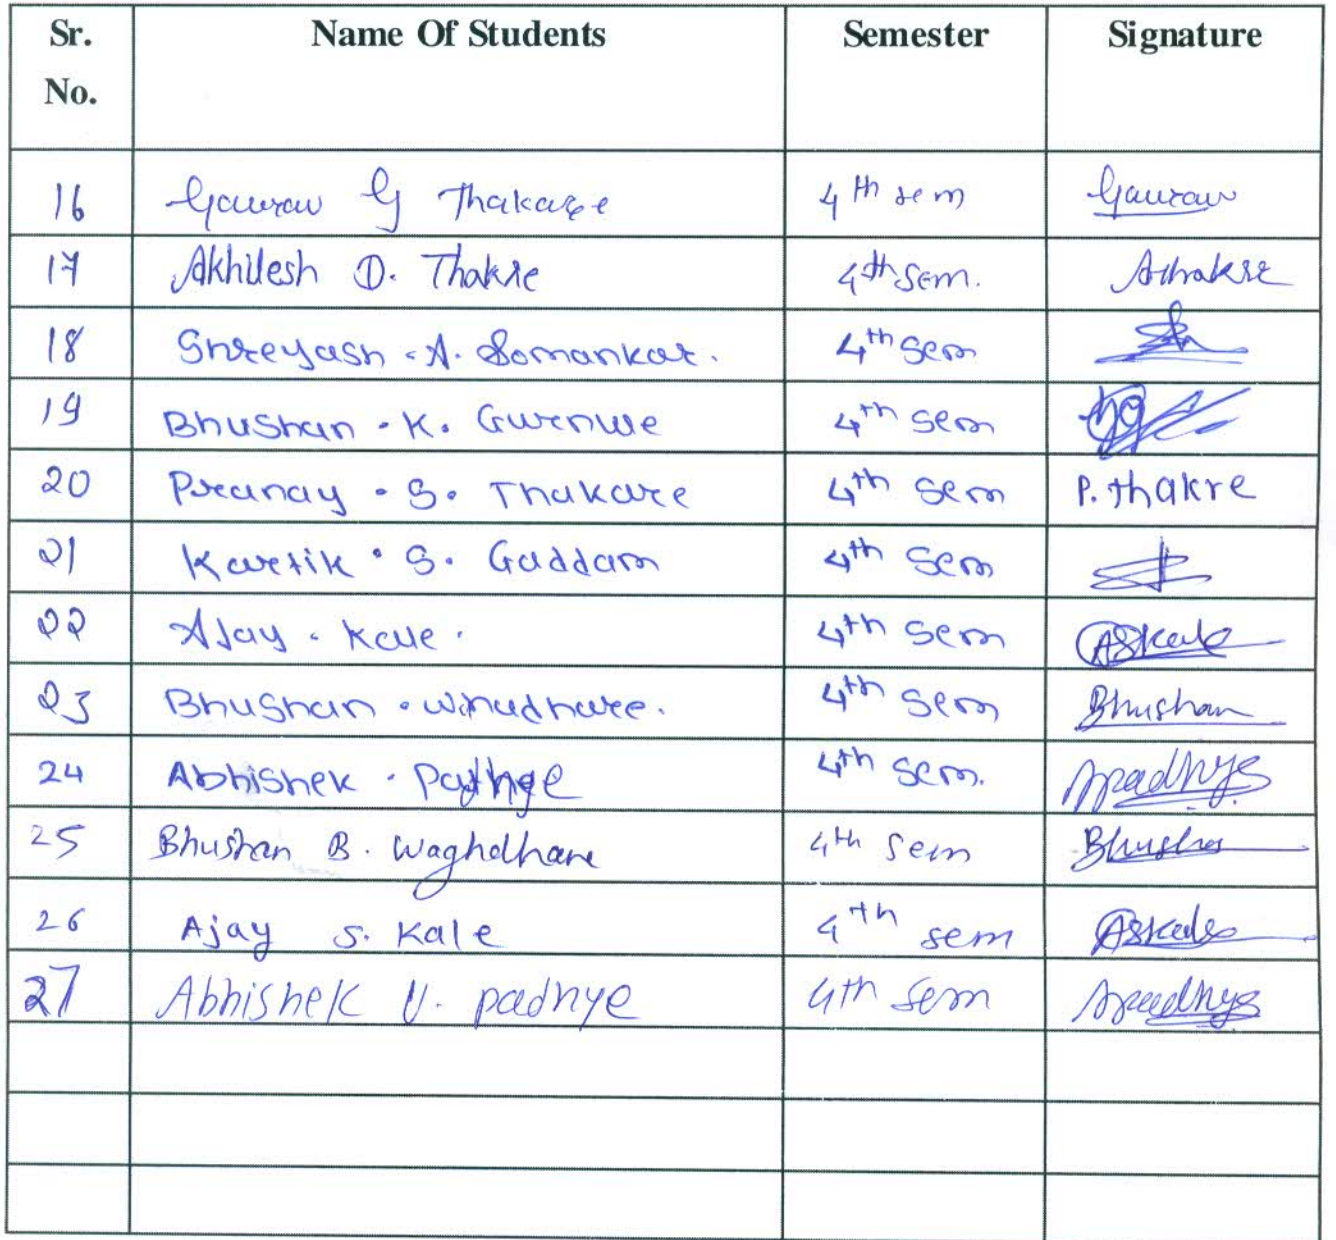 Sr. No. Name Of Students Semester Signature
16 Gaurav G Thakare 4th sem Gaurav
17 Akhilesh D. Thakre 4th Sem. AThakre
18 Shreyash . A. Somankar. 4th sem
19 Bhushan . K. Gurnule 4th sem
20 Pranay . S. Thakare 4th sem P. Thakre
21 Kartik . S. Gaddam 4th sem
22 Ajay . Kale . 4th sem ASKale
23 Bhushan . 4th sem Bhushan
24 Abhishek . 4th sem. Apadhye
25 Bhushan B. Waghdhare 4th Sem Bhushan
26 Ajay S. Kale 4th sem ASKale
27 Abhishek U. padhye 4th sem Apadhye